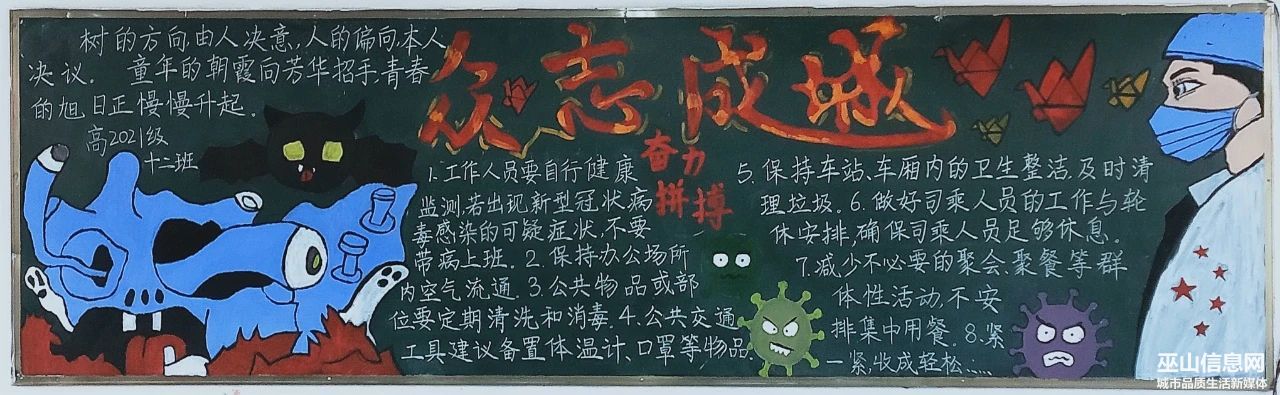 树的方向,由人决意,人的偏向,本人
决议。 童年的朝霞向芳华招手,青春
的旭日正慢慢升起。
高2021级
十二班
众志成城
奋力
拼搏
1.工作人员要自行健康
监测,若出现新型冠状病
毒感染的可疑症状,不要
带病上班。2.保持办公场所
内空气流通。3.公共物品或部
位要定期清洗和消毒。4.公共交通
工具建议备置体温计、口罩等物品。
5.保持车站、车厢内的卫生整洁,及时清
理垃圾。6.做好司乘人员的工作与轮
休安排,确保司乘人员足够休息。
7.减少不必要的聚会、聚餐等群
体性活动,不安
排集中用餐。8.紧
一紧,收成轻松……
巫山信息网
城市品质生活新媒体